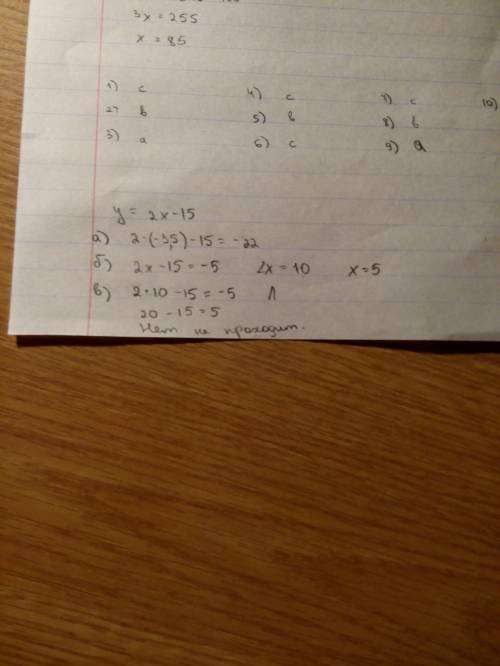 3x = 255
x = 85
1) c 4) c 7) c 10)
2) b 5) b 8) b
3) a 6) c 9) a
y = 2x - 15
а) 2·(-3,5) - 15 = -22
б) 2x - 15 = -5 2x = 10 x = 5
в) 2·10 - 15 = -5 Л
20 - 15 = 5
Нет не проходит.